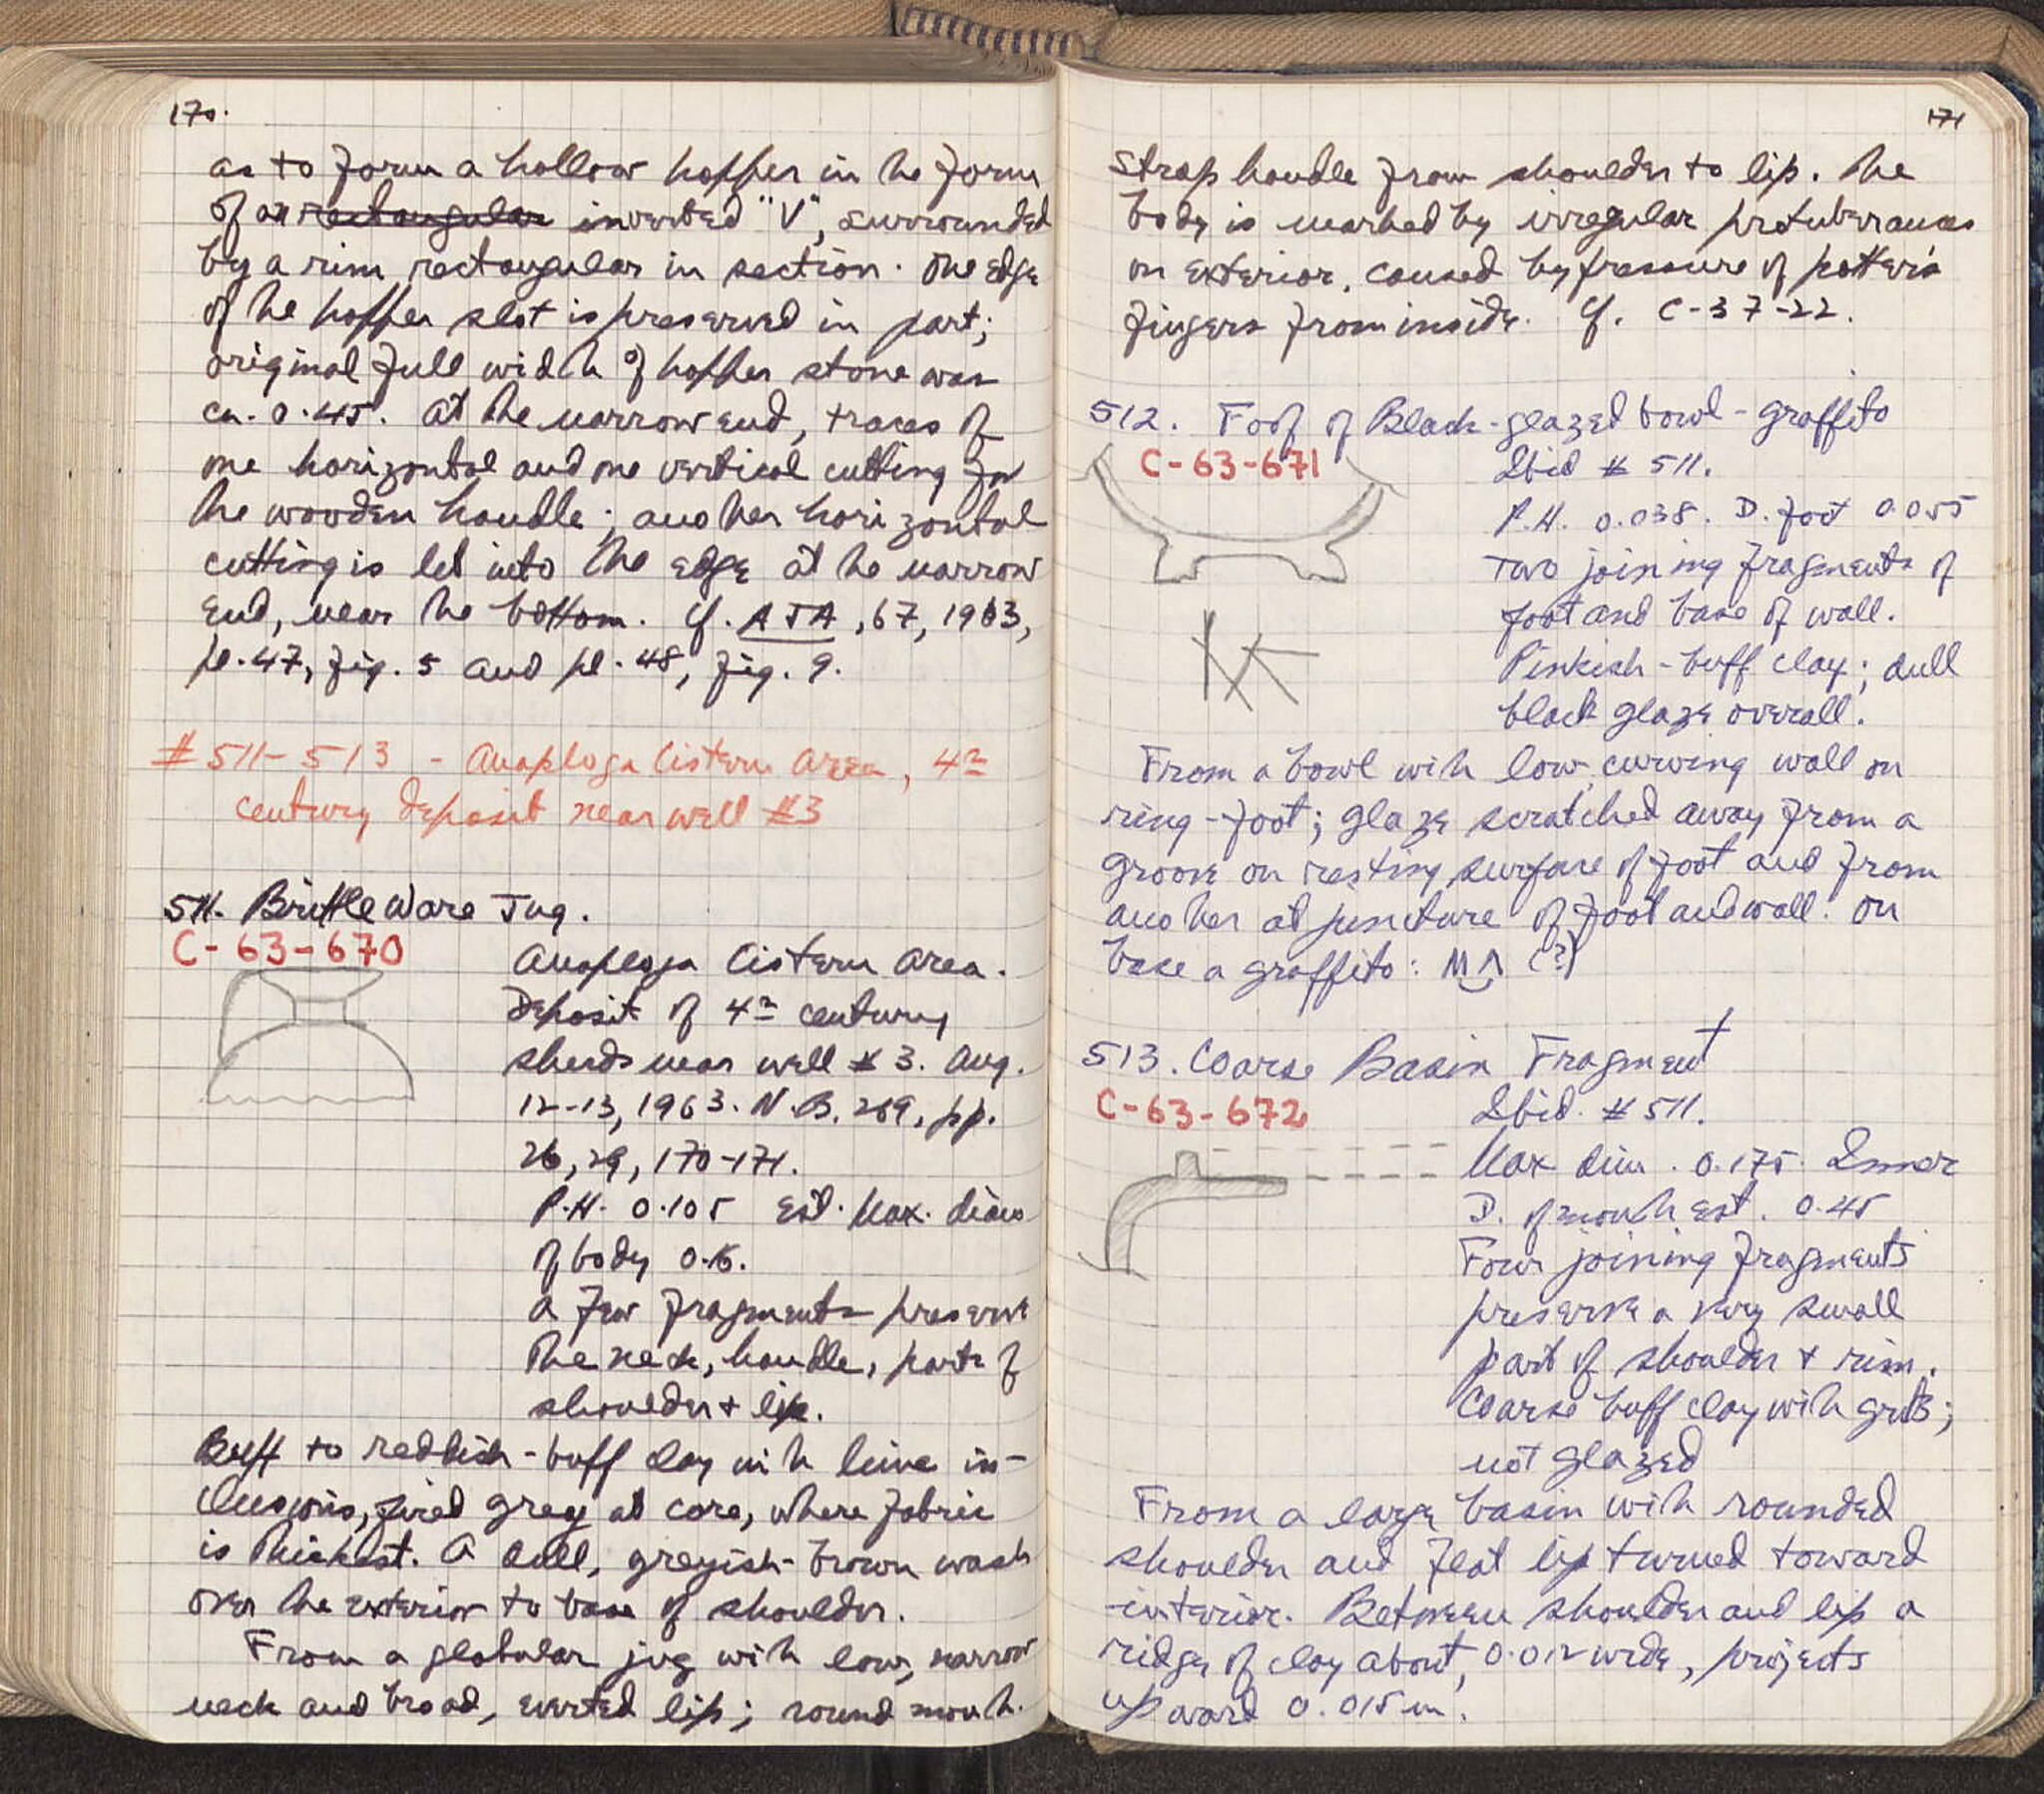 170.
as to form a hollow hopper in the form
of an rectangular inverted "V", surrounded
by a rim rectangular in section. One edge
of the hopper slot is preserved in part;
original full width of hopper stone was
ca. 0.45. At the narrow end, traces of
one horizontal and one vertical cutting for
the wooden handle; another horizontal
cutting is let into the edge at the narrow
end, near the bottom. Cf. AJA, 67, 1963,
pl. 47, fig. 5 and pl. 48, fig. 9.
#511-513 - Anaploga Cistern Area, 4th
century deposit near well #3
511. Brittle Ware Jug.
C-63-670
Anaploga Cistern Area.
Deposit of 4th century
sherds near well #3. Aug.
12-13, 1963. N.B. 269, pp.
26, 29, 170-171.
P.H. 0.105 Est. Max. diam
of body 0.16.
A few fragments preserve
the neck, handle, parts of
shoulder + lip.
Buff to reddish-buff clay with lime in-
clusions, fired grey at core, where fabric
is thickest. A dull, greyish-brown wash
over the exterior to base of shoulder.
From a globular jug with low, narrow
neck and broad, everted lip; round mouth.
171
Strap handle from shoulder to lip. The
body is marked by irregular protuberances
on exterior, caused by pressure of potter's
fingers from inside. Cf. C-37-22.
512. Foot of Black-glazed bowl - graffito
C-63-671
Ibid #511.
P.H. 0.038. D. foot 0.055
Two joining fragments of
foot and base of wall.
Pinkish-buff clay; dull
black glaze overall.
From a bowl with low, curving wall on
ring-foot; glaze scratched away from a
groove on resting surface of foot and from
another at juncture of foot and wall. On
base a graffito: (?)
513. Coarse Basin Fragment
C-63-672
Ibid. #511.
Max dim. 0.175. Inner
D. of mouth est. 0.45
Four joining fragments
preserve a very small
part of shoulder + rim.
Coarse buff clay with grits;
not glazed
From a large basin with rounded
shoulder and flat lip turned toward
interior. Between shoulder and lip a
ridge of clay about 0.012 wide, projects
upward 0.015 m.